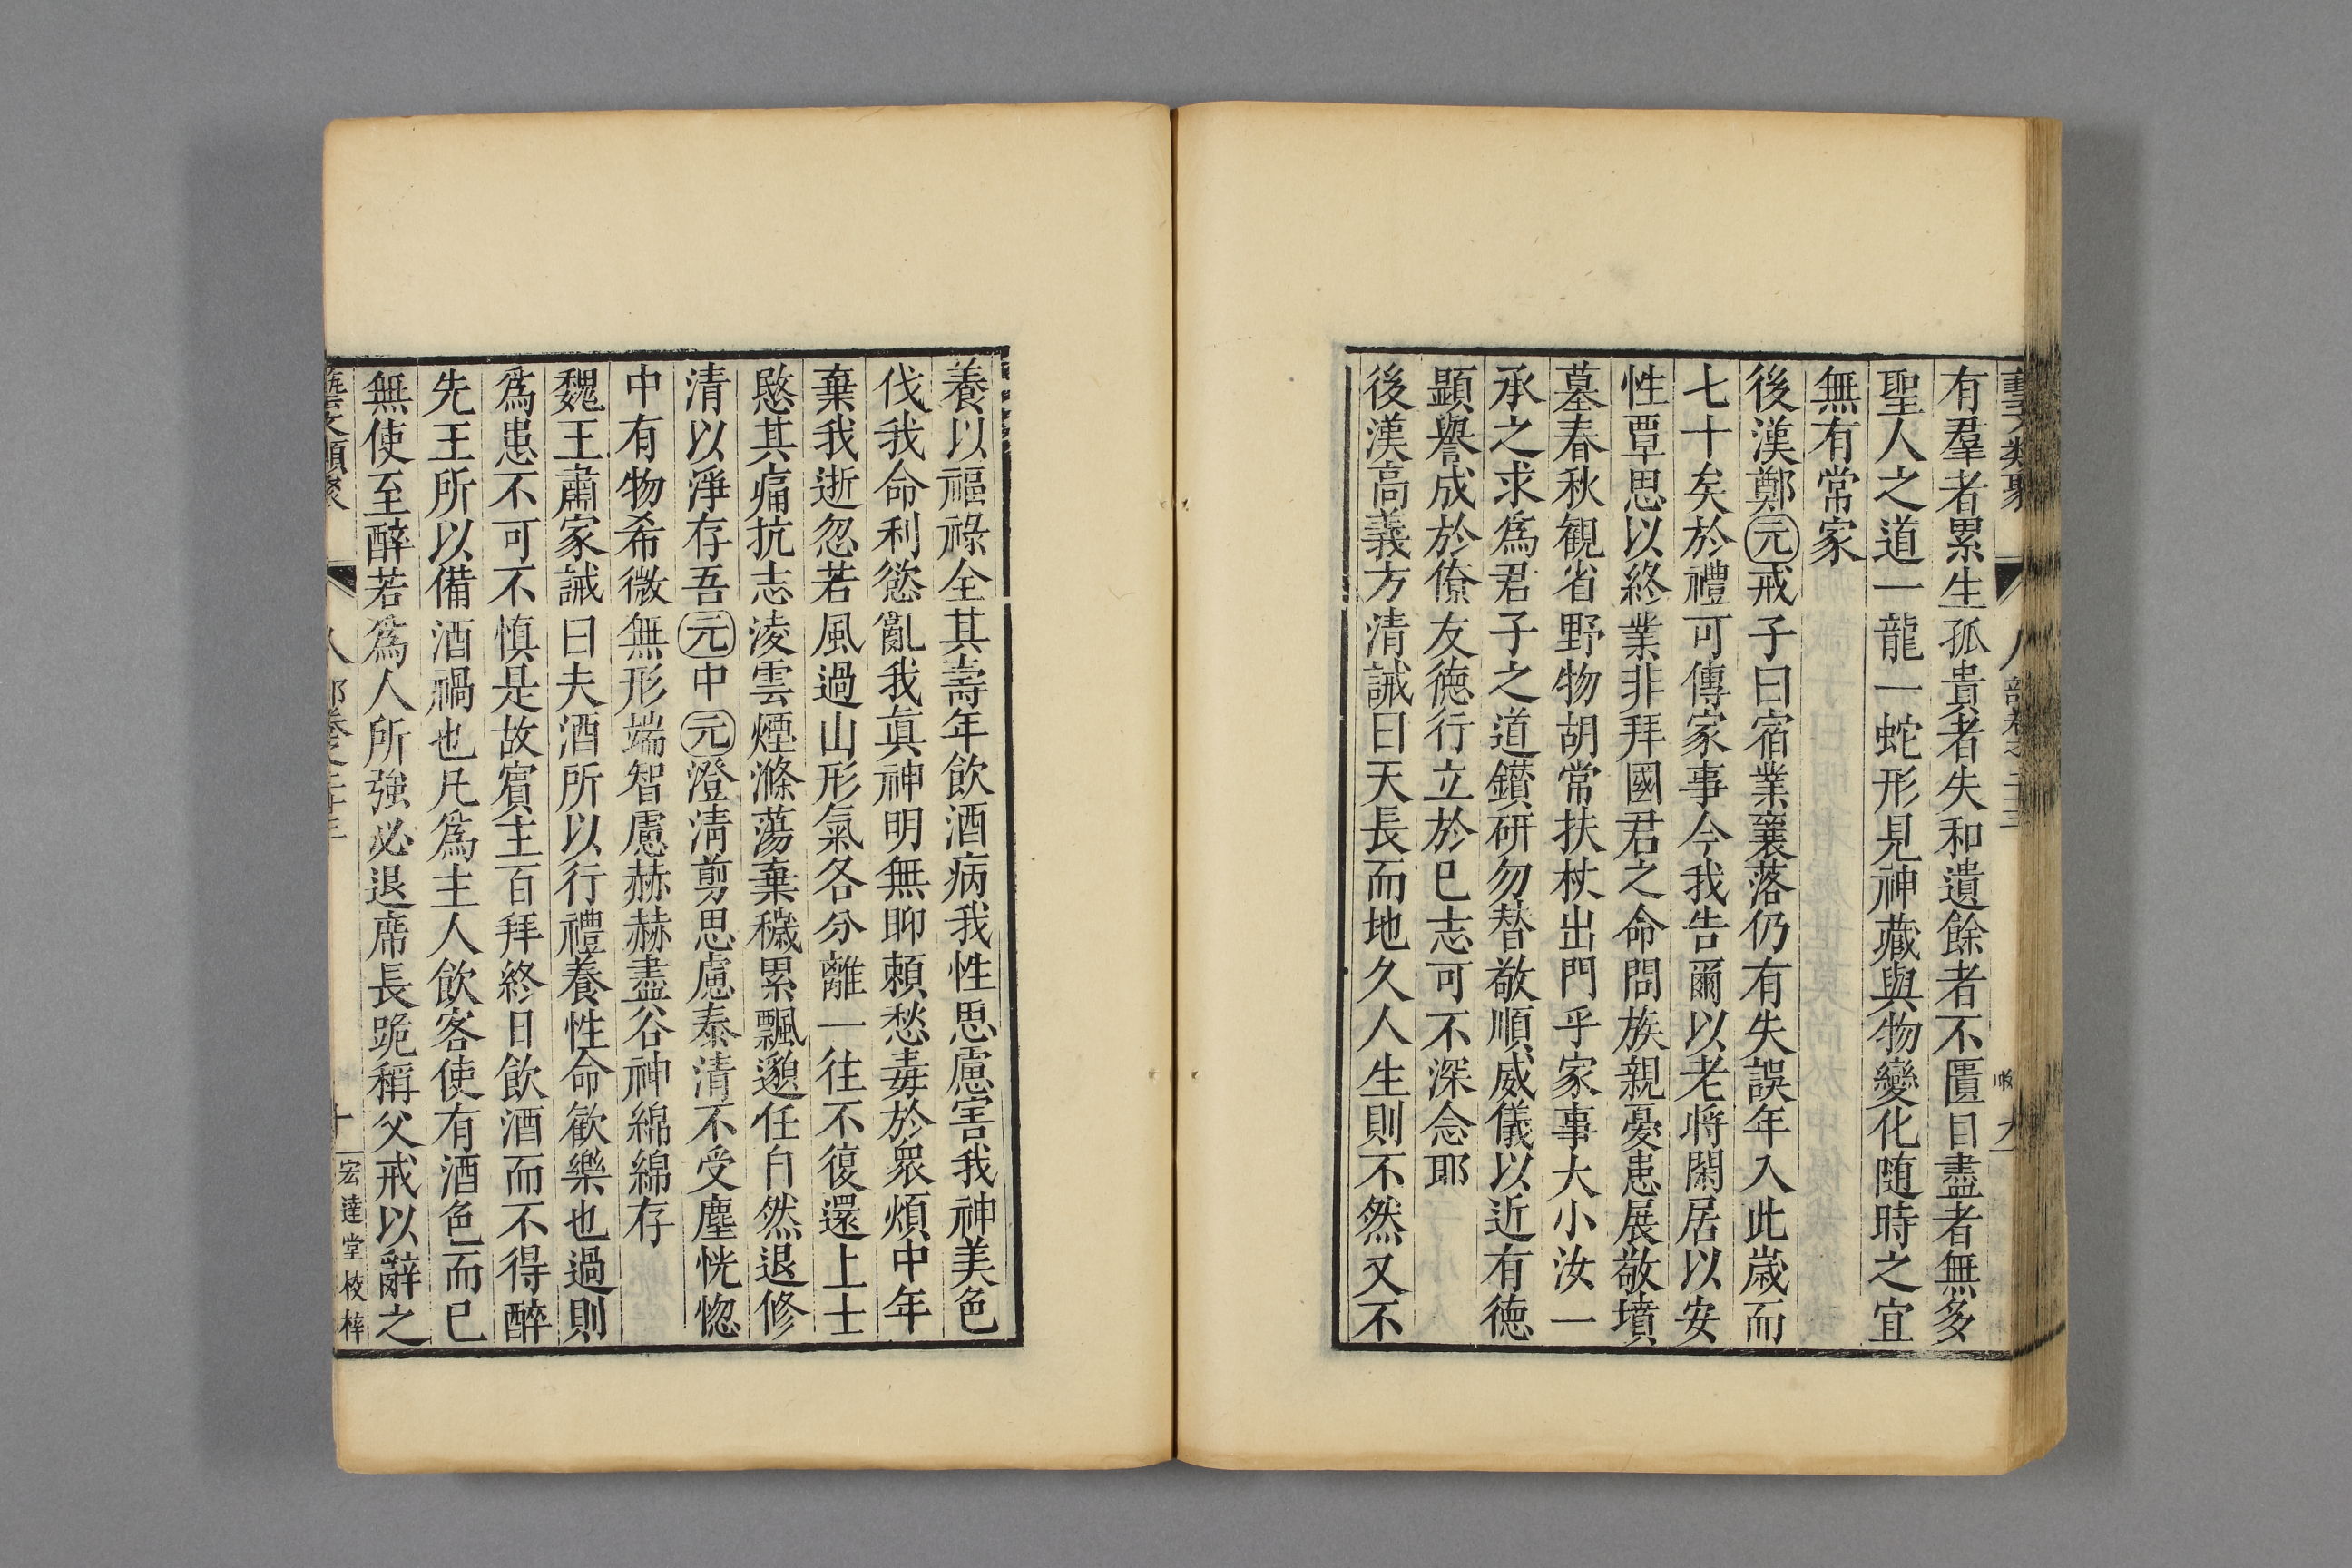 藝文類聚 人部卷之二十三 九
有羣者累生孤貴者失和遺餘者不匱自盡者無多
聖人之道一龍一蛇形見神藏與物變化随時之宜
無有常家
後漢鄭元戒子曰宿業衰落仍有失誤年入此歲而
七十矣於禮可傳家事今我告爾以老將閑居以安
性覃思以終業非拜國君之命問族親憂患展敬墳
墓春秋觀省野物胡常扶杖出門乎家事大小汝一
承之求為君子之道鑚研勿替敬順威儀以近有德
顯譽成於僚友德行立於已志可不深念耶
後漢高義方清誡曰天長而地久人生則不然又不
養以福祿全其壽年飲酒病我性思慮害我神美色
伐我命利慾亂我眞神明無聊賴愁毒於衆煩中年
棄我逝忽若風過山形氣各分離一往不復還上士
愍其痛抗志淩雲煙滌蕩棄穢累飄邈任自然退修
清以淨存吾元中元澄淸剪思慮泰清不受塵恍惚
中有物希微無形端智慮赫赫盡谷神綿綿存
魏王肅家誡曰夫酒所以行禮養性命歡樂也過則
爲患不可不慎是故賓主百拜終日飲酒而不得醉
先王所以備酒禍也凡爲主人飲客使有酒色而已
無使至醉若爲人所強必退席長跪稱父戒以辭之
藝文類聚 人部卷之二十三 十 宏達堂校梓